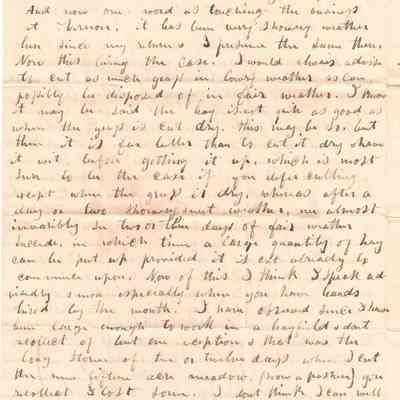 And now one word as touching the business
at Vernon, it has been very showery weather
here since my return & I presume the same there.
Now this being the case. I would always advise
to cut as much grass in lowry weather as can
possibly be disposed of in fair weather. I know
it may be said the hay is not quite as good as
when the grass is cut dry. this may be so. but
then it is far better than to cut it dry & have
it wet before getting it up. which is most
sure to be the case if you defer cutting
except when the grass is dry. whereas after a
day or two showery wet weather, we almost
invariably have two or three days of fair weather
succeeds. in which time a large quantity of hay
can be put up provided it is cut already to
commence upon. Now of this I think I speak ad-
visedly & more especially when you have hands
hired by the month. I have observed since I have
been large enough to work in a hayfield & dont
recollect of but one exception & that was the
long storm of ten or twelve days when I cut
the nine acre meadow. (now a pasture) you
recollect I lost some. I dont think I ean will